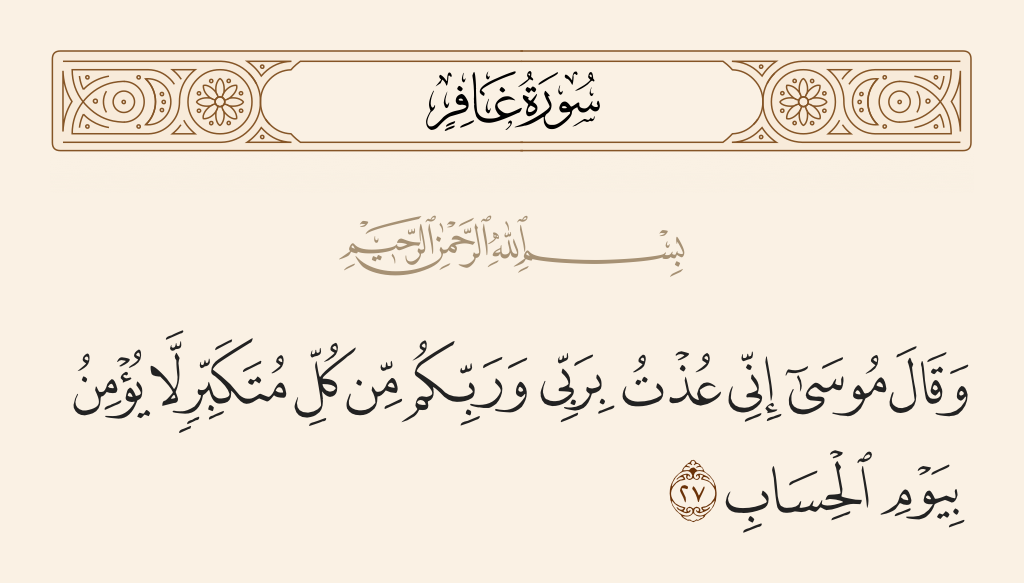 سُورَةُ غَافِرٍ
بِسْمِ ٱللَّهِ ٱلرَّحْمَٰنِ ٱلرَّحِيمِ
وَقَالَ مُوسَىٰٓ إِنِّى عُذْتُ بِرَبِّى وَرَبِّكُم مِّن كُلِّ مُتَكَبِّرٍ لَّا يُؤْمِنُ
بِيَوْمِ ٱلْحِسَابِ ٢٧